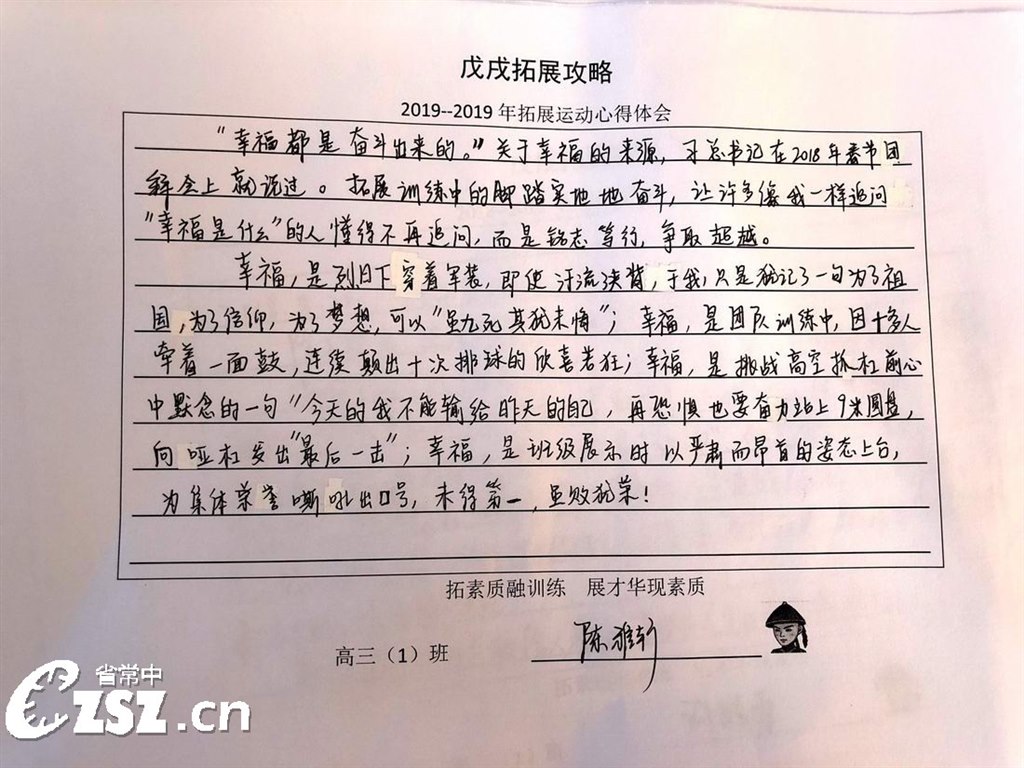 戊戌拓展攻略
2019--2019 年拓展运动心得体会
“幸福都是奋斗出来的。”关于幸福的来源，习总书记在2018年春节团
拜会上就说过。拓展训练中的脚踏实地地奋斗，让许多像我一样追问
“幸福是什么”的人懂得不再追问，而是铭志笃行，争取超越。
幸福，是烈日下穿着军装，即使汗流浃背，于我，只是犹记了一句为了祖
国，为了信仰，为了梦想，可以“虽九死其犹未悔”；幸福，是团队训练中，因十多人
牵着一面鼓，连续颠出十次排球的欣喜若狂；幸福，是挑战高空抓杠前心
中默念的一句“今天的我不能输给昨天的自己，再恐惧也要奋力站上9米圆盘，
向哑杠发出“最后一击”；幸福，是班级展示时以严肃而昂首的姿态上台，
为集体荣誉嘶吼出口号，未得第一，虽败犹荣！
拓素质融训练 展才华现素质
高三（1）班 陈雅轩
省常中
CZSZ.cn